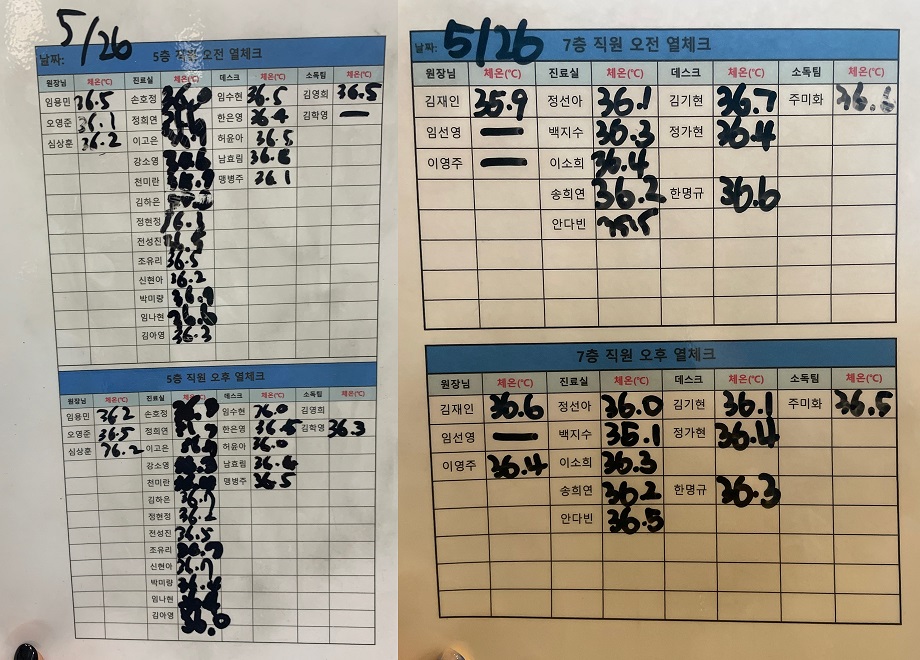 5/26
날짜: 5층 직원 오전 열체크
원장님 체온(℃) 진료실 체온(℃) 데스크 체온(℃) 소독팀 체온(℃)
임용민 36.5 손호정 임수현 36.5 김영희 36.5
오영준 36.1 정희연 한은영 36.4 김학영 —
심상훈 36.2 이고은 허윤아 36.5
강소영 남효림
천미란 맹병주 36.1
김하은
정현정
전성진
조유리 36.5
신현아 36.2
박미량
임나현 36.6
김아영 36.3
5층 직원 오후 열체크
원장님 체온(℃) 진료실 체온(℃) 데스크 체온(℃) 소독팀 체온(℃)
임용민 36.2 손호정 임수현 김영희
오영준 36.5 정희연 한은영 김학영 36.3
심상훈 이고은 허윤아 36.0
강소영 남효림
천미란 맹병주 36.5
김하은
정현정 36.2
전성진 36.5
조유리
신현아
박미량 36.4
임나현
김아영
날짜: 5/26 7층 직원 오전 열체크
원장님 체온(℃) 진료실 체온(℃) 데스크 체온(℃) 소독팀 체온(℃)
김재인 35.9 정선아 36.1 김기현 36.7 주미화
임선영 — 백지수 36.3 정가현 36.4
이영주 — 이소희 36.4
송희연 36.2 한명규 36.6
안다빈 35.5
7층 직원 오후 열체크
원장님 체온(℃) 진료실 체온(℃) 데스크 체온(℃) 소독팀 체온(℃)
김재인 36.6 정선아 36.0 김기현 36.1 주미화 36.5
임선영 — 백지수 정가현 36.4
이영주 36.4 이소희 36.3
송희연 36.2 한명규 36.3
안다빈 36.5